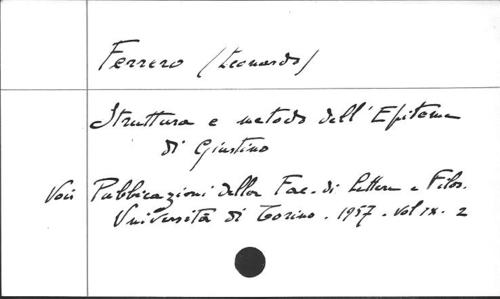 Ferrero (Leonardo)
Struttura e metodo dell'Epitome
di Giustino
Voir Pubblicazioni della Fac. di Lettere e Filos.
Università di Torino. 1957. Vol IX. 2